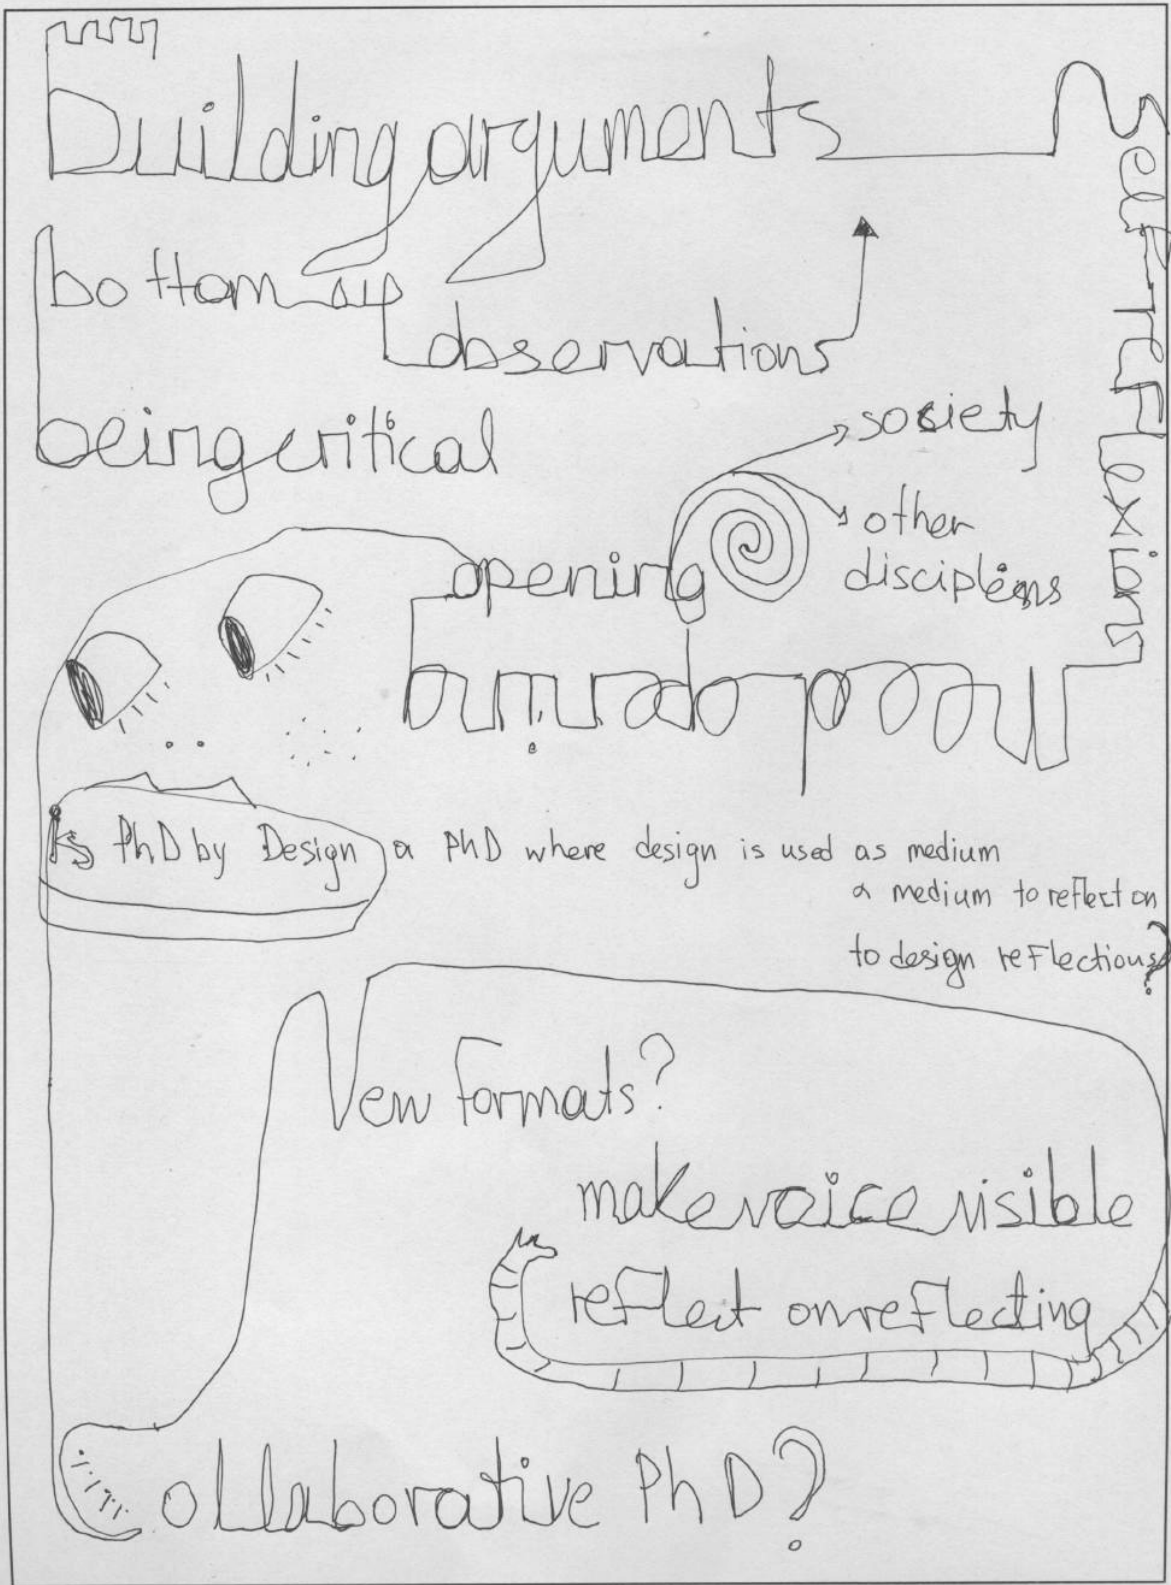 Building arguments
self-reflexion
bottom up
observations
being critical
society
other
opening
disciplins
Need opening
Is PhD by Design a PhD where design is used as medium
a medium to reflect on
to design reflections?
New formats?
make voice visible
reflect on reflecting
Collaborative PhD?